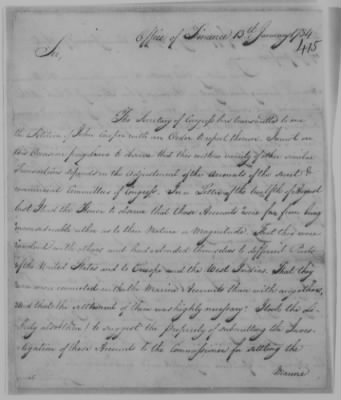 Office of Finance 13th January 1784
415
Sir,
The Secretary of Congress has transmitted to me
the Petition of John Cowper with an Order to report thereon. I must on
this Occasion pray leave to observe that this with a variety of other similar
Transactions depends on the adjustment of the Accounts of the secret &
commercial Committees of Congress. In a Letter of the twelfth of August
last I had the Honor to observe that those Accounts were far from being
inconsiderable either as to their Nature or Magnitude. That they were
involved with others and had extended themselves to different Parts
of the United States and to Europe and the West Indies. That they
were more connected with the Marine Accounts than with any others,
and that the settlement of them was highly necessary. I took the Li-
berty also then to suggest the Propriety of submitting the Inves-
tigation of these Accounts to the Commissioner for settling the
Marine